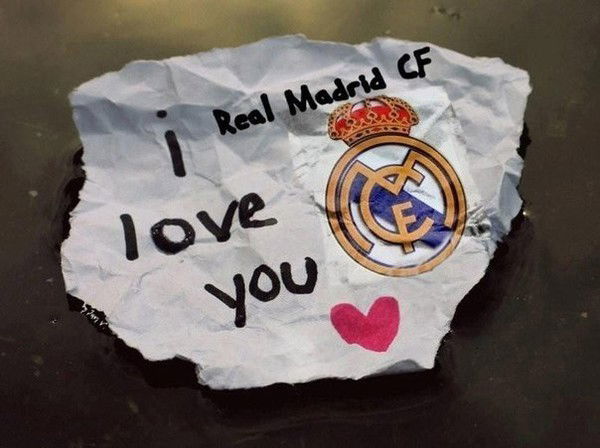 Real Madrid CF
i
love
you
MCF